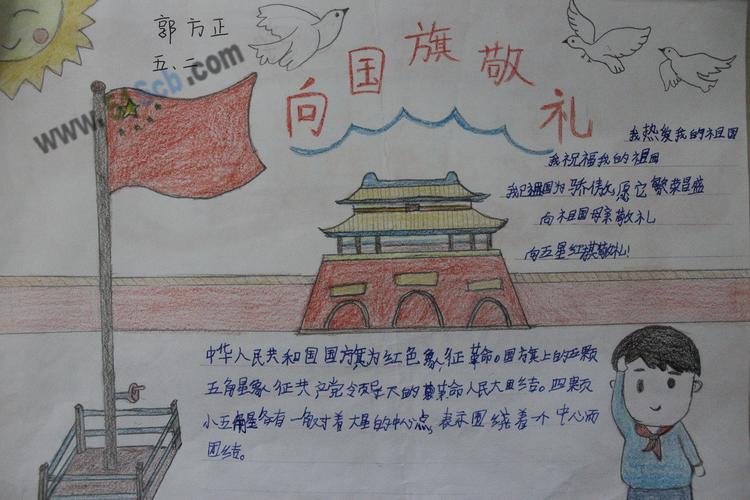 郭方正
五、二
向国旗敬礼
我热爱我的祖国
我祝福我的祖国
我以祖国为骄傲，愿它繁荣昌盛
向祖国母亲敬礼
向五星红旗敬礼！
中华人民共和国国旗为红色象征革命。国旗上的五颗
五角星象征共产党领导下的革命人民大团结。四颗
小五角星各有一角对着大星的中心点，表示围绕着一个中心而
团结。